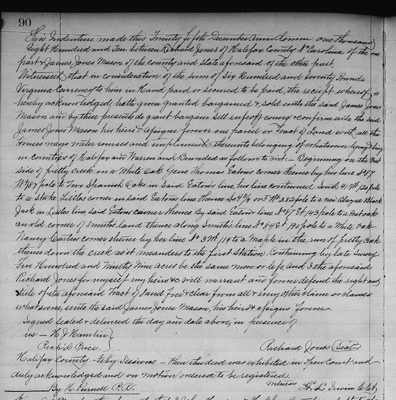 90
This Indenture made this Twenty fifth December Anno Domini one Thousand
Eight Hundred and Ten between Richard Jones of Halifax County N Carolina of the one
part & James Jones Mason of the county and State aforesaid of the other part,
Witnesseth that in consideration of the sum of Six Hundred and Seventy Pounds
Virginia Currency to him in Hand paid or secured to be paid, the receipt whereof is
hereby acknowledged hath given granted bargained & sold unto the said James Jones
Mason and by these presents do grant bargain sell enfeoff convey & confirm unto the said
James Jones Mason his heirs & assigns forever one parcel or Tract of Land with all the
Houses ways water courses and implements thereunto belonging of whatsoever lying & being
in counties of Halifax and Warren and Bounded as follows to wit. - Beginning on the
side of pretty creek on a White Oak Gens Thomas Eatons corner thence by his line
to Two Spanish Oaks in Said Eatons line, his line continued
to a Stake Littles corner in said Eatons line thence
Jack in Littles line said Eatons corner thence by said Eatons line to a Red oak
an old corner of Smiths land thence along Smiths line to a White Oak
Nancy Carters corner thence by her line to a Maple in the run of pretty creek
thence down the creek as it meanders to the first Station. Containing by late Survey
Ten Hundred and Ninety Nine acres be the same more or less, and I the aforesaid
Richard Jones for myself my heirs &c will warrant and forever defend the right and
title of the aforesaid tract of Land free & clear from all & every other claim or claims
whatsoever, unto the said James Jones Mason, his heirs & assigns forever
Signed sealed & delivered the day and date above, in presence of
Richard Jones (Seal)
Halifax County - Feby Sessions - Then this deed was exhibited in Open Court and
duly acknowledged and on motion ordered to be registered.